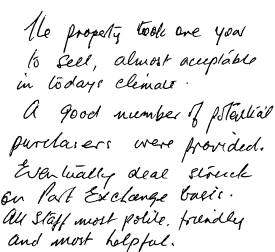 The property took one year
to sell, almost acceptable
in todays climate.
A good number of potential
purchasers were provided.
Eventually deal struck
on Part Exchange basis.
All staff most polite, friendly
and most helpful.